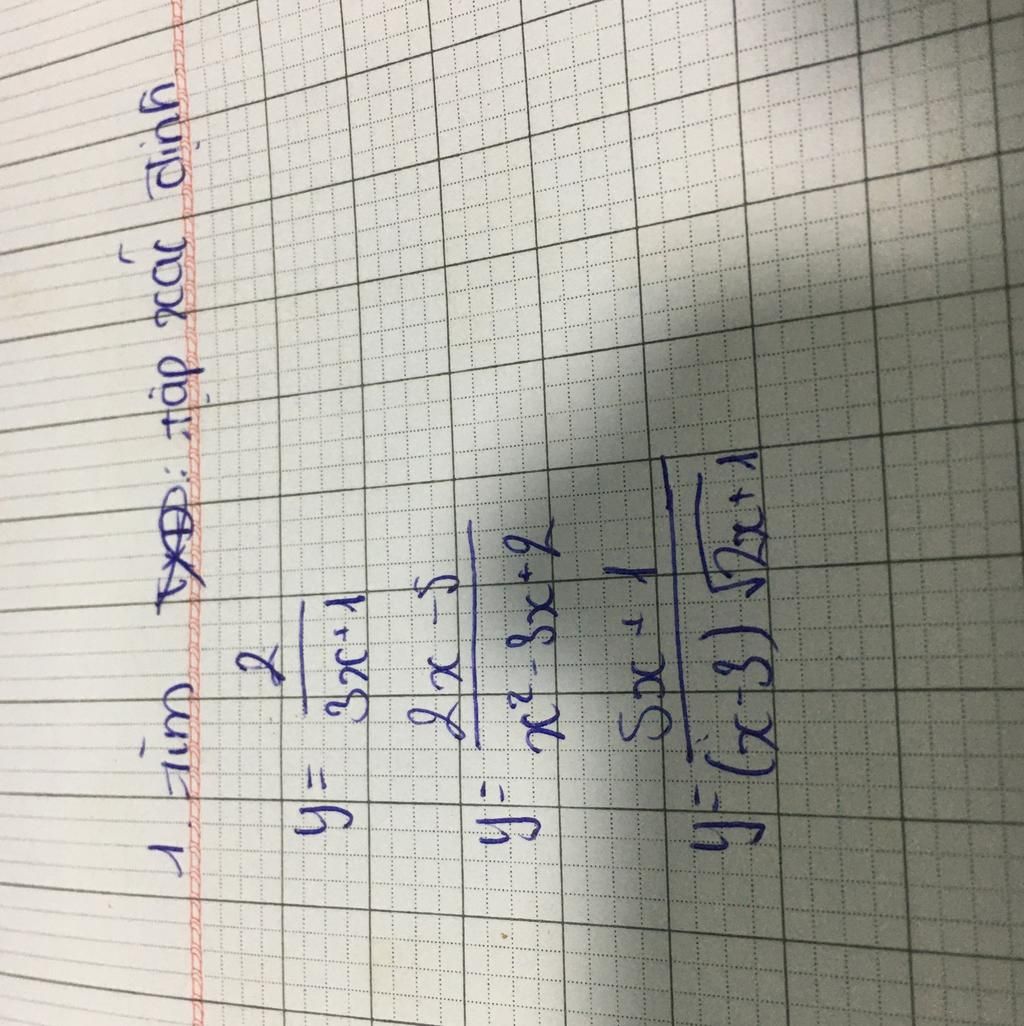 1. Tìm TXĐ: tập xác định
y = 2 / 3x+1
y = 2x-5 / x²-3x+2
y = 5x+1 / (x-3)√2x+1